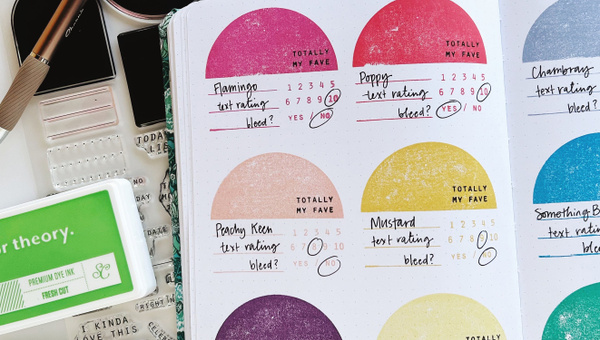 TOTALLY
MY FAVE
Flamingo
1 2 3 4 5
text rating
6 7 8 9 10
bleed?
YES / NO
TOTALLY
MY FAVE
Poppy
1 2 3 4 5
text rating
6 7 8 9 10
bleed?
YES / NO
Chambray
text rating
bleed?
TOTALLY
MY FAVE
Peachy Keen
1 2 3 4 5
text rating
6 7 8 9 10
bleed?
YES / NO
TOTALLY
MY FAVE
Mustard
1 2 3 4 5
text rating
6 7 8 9 10
bleed?
YES / NO
Something B
text rating
bleed?
TOTALLY
r theory.
PREMIUM DYE INK
FRESH CUT
TODAY
I KINDA
LOVE THIS